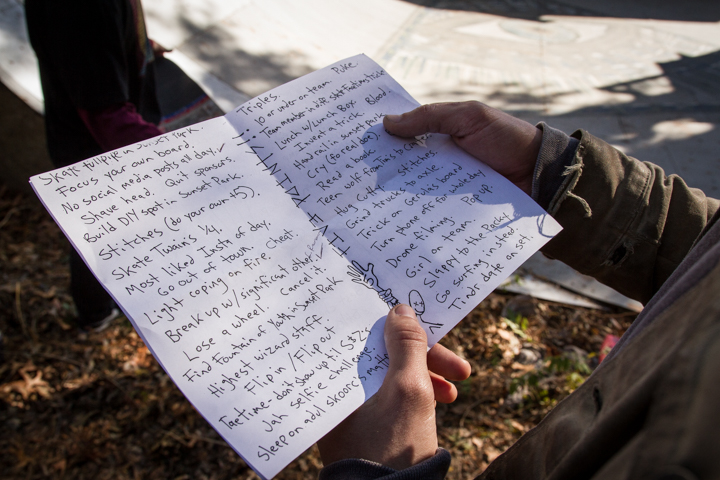 Skate fullpipe in Sunset Park.
Focus your own board.
No social media posts all day. ✓
Shave head. Quit sponsors.
Build DIY spot in Sunset Park.
Stitches (do your own +5)
Skate Twains 1/4.
Most liked Insta of day.
Go out of town. Cheat.
Light coping on fire.
Break up w/ significant other
Lose a wheel. Cancel it.
Find Fountain of Youth in Sunset Park
Highest wizard staff.
Flip in / Flip out
Tae time don't show up til 5:52
Jah selfie challenge.
Sleep on adul skoorc
Triples. Puke
10 or under on team.
Team member in diff. state
Lunch w/ Lunch Box
Invent a trick. Blood.
Handrail in sunset park
Cry (forced).
Read a book.
Teen wolf from
Hug Cutter. Stitches.
Grind trucks to axle.
Trick on Geralds board
Turn phone off for whole day
Drone filming. Pop up
Girl on team.
Slappy to the Rocky
Go surfing instead.
Tinder date on set.